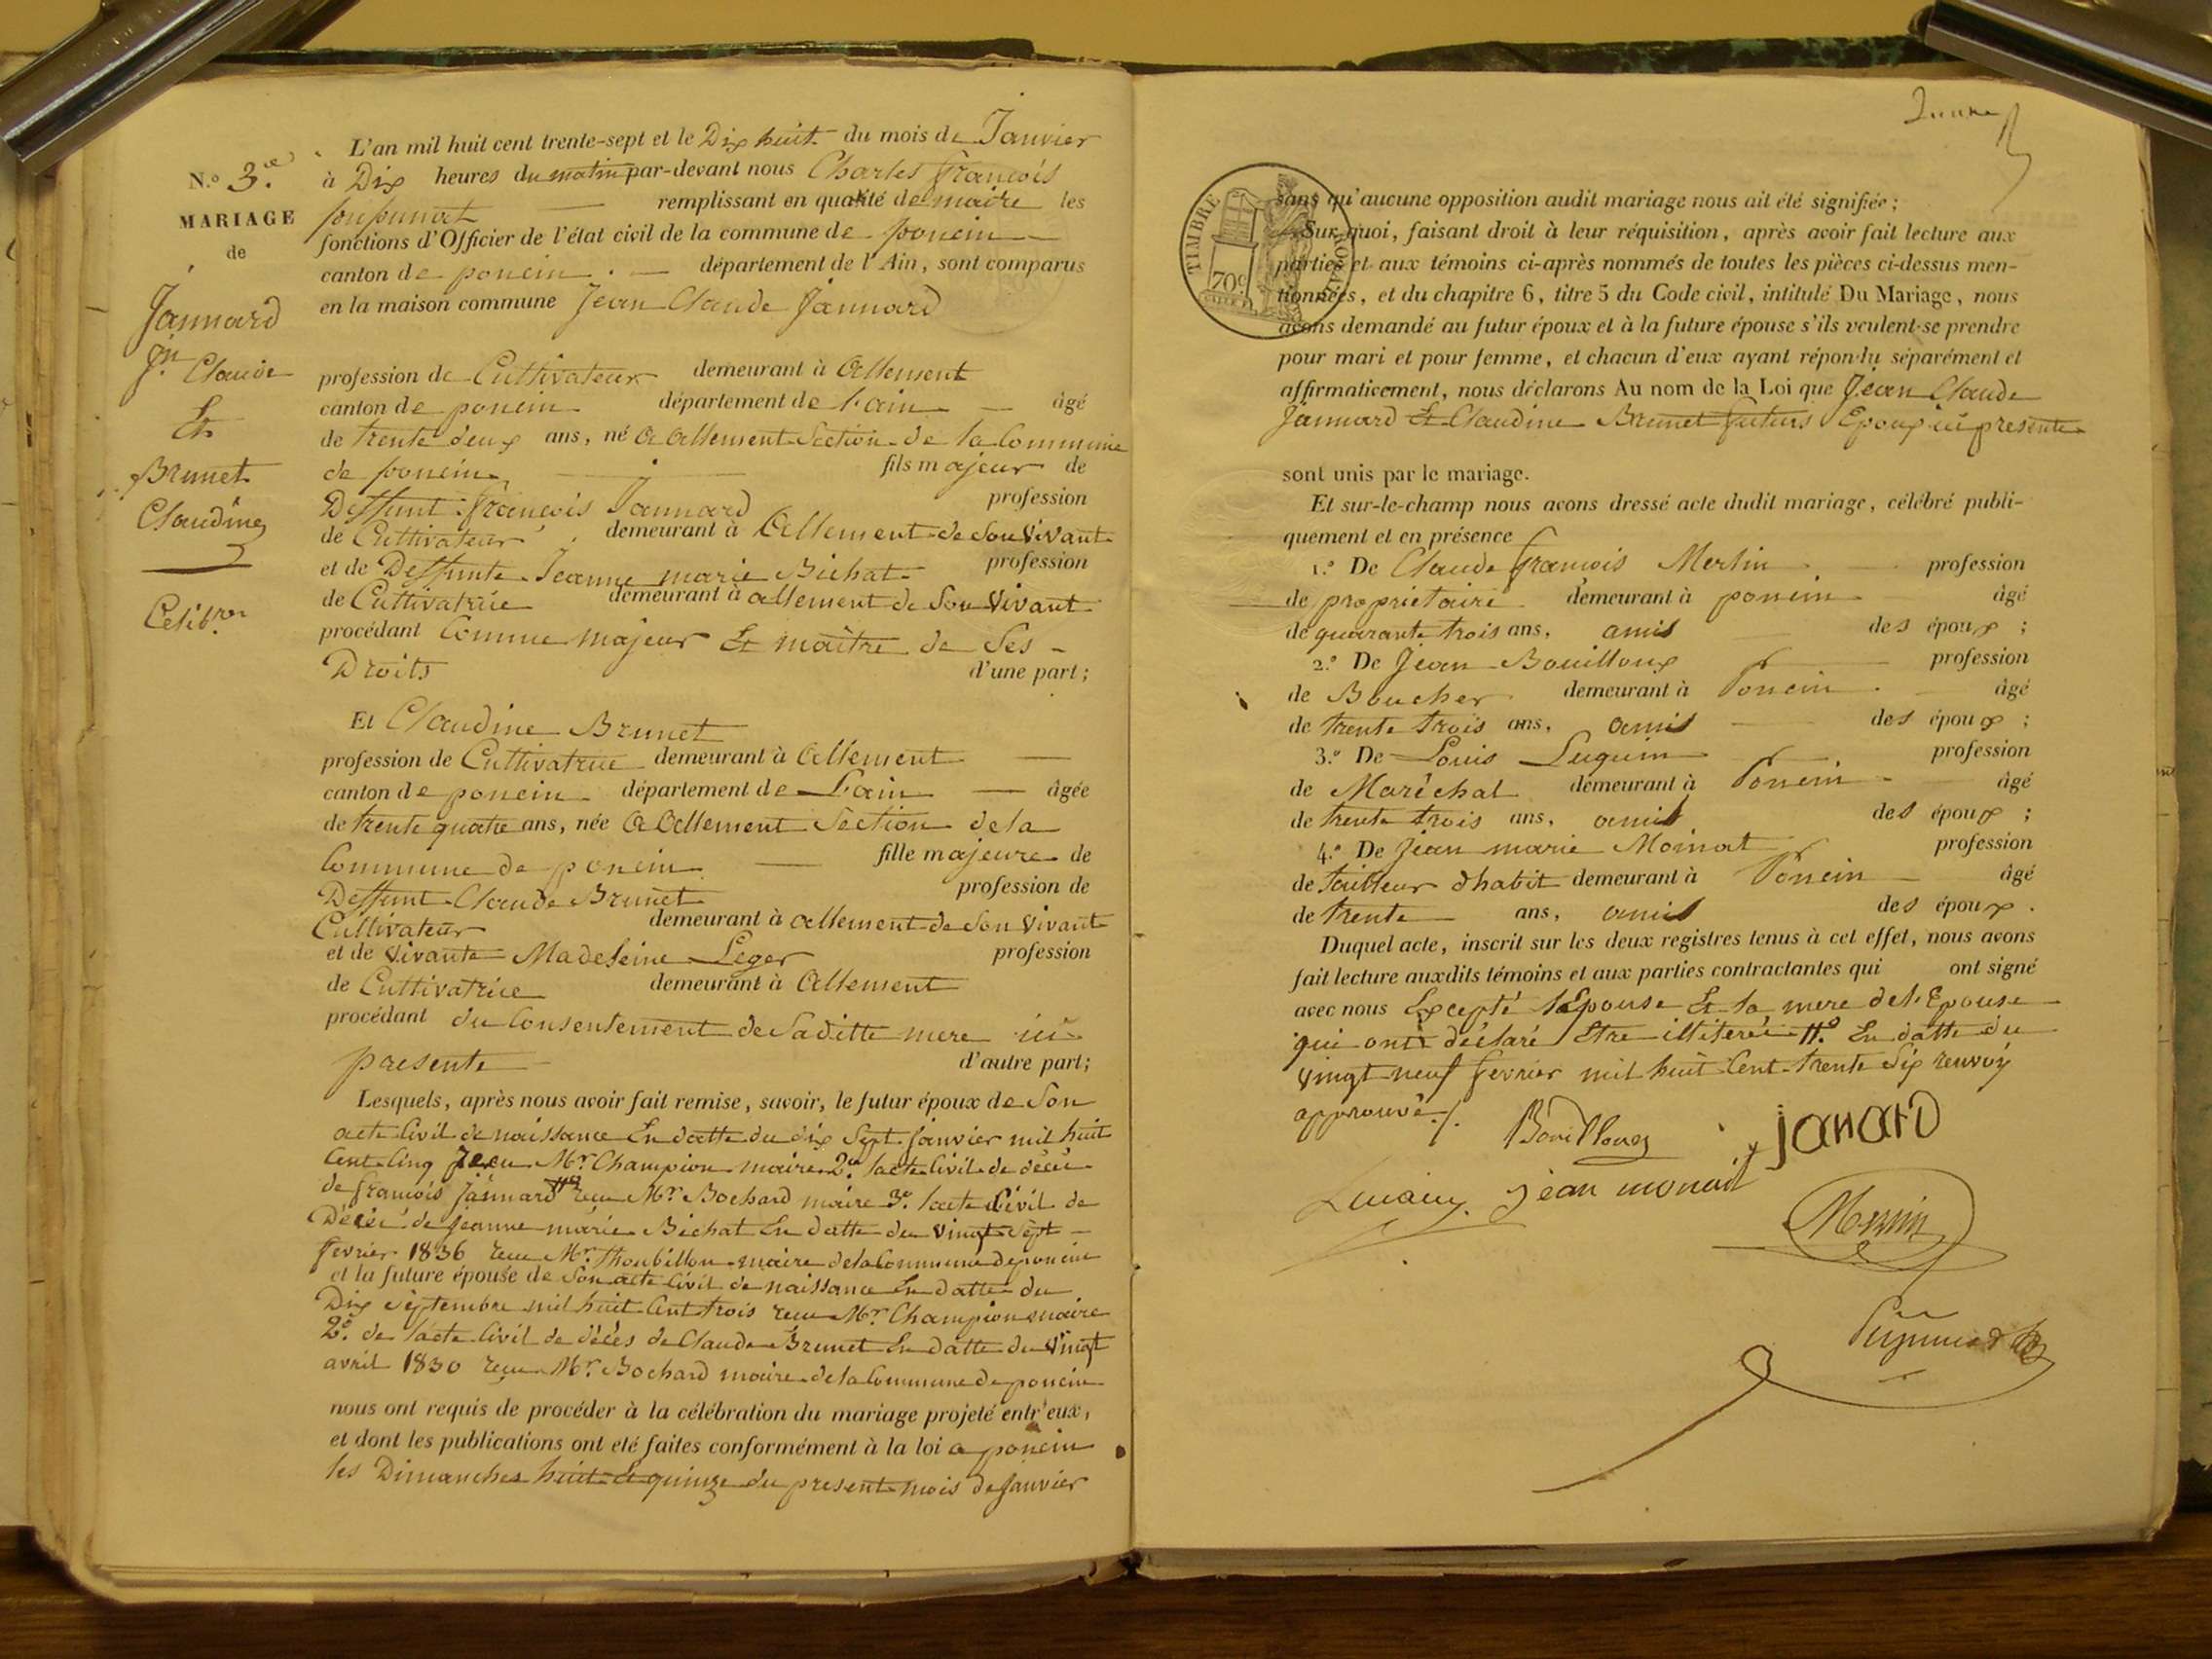 N.o 3.e
MARIAGE
de
Jannard
Jn Claude
Et
Brunet
Claudine
L'an mil huit cent trente-sept et le Dix huit du mois de Janvier
à Dix heures du matin par-devant nous Charles françois
remplissant en qualité de maire les
fonctions d'Officier de l'état civil de la commune de poncin
canton de poncin département de l'Ain, sont comparus
en la maison commune Jean Claude Jannard
profession de Cultivateur demeurant à Allement
canton de poncin département de L'ain âgé
de trente deux ans, né a allement Section de la Commune
de poncin fils majeur de
Deffunt françois Jannard profession
de Cultivateur demeurant à Allement de Son Vivant
et de Deffunte Jeanne marie Bichat profession
de Cultivatrice demeurant à allement de Son Vivant
procédant Comme majeur Et maitre de Ses
Droits d'une part;
Et Claudine Brunet
profession de Cultivatrice demeurant à Allement
canton de poncin département de L'ain âgée
de trente quatre ans, née a Allement Section de la
Commune de poncin fille majeure de
Deffunt Claude Brunet profession de
Cultivateur demeurant à allement de Son Vivant
et de Vivante Madeleine Leger profession
de Cultivatrice demeurant à Allement
procédant du Consentement de Saditte mere ici
presente d'autre part;
Lesquels, après nous avoir fait remise, savoir, le futur époux de Son
acte Civil de naissance En datte du dix Sept janvier mil huit
Cent Cinq recu Mr Champion maire 2.e lacte Civil de décès
de françois Jannard recu Mr Bochard maire 3.e lacte Civil de
Décès de jeanne marie Bichat En datte du vingt Sept
fevrier 1836 recu Mr. Thoubillon maire de la Commune de poncin
et la future épouse de Son acte Civil de naissance En datte du
Dix Septembre mil huit Cent trois recu Mr Champion maire
2.e de lacte Civil de décès de Claude Brunet En datte du vingt
avril 1830 recu Mr. Bochard maire de la Commune de poncin
nous ont requis de procéder à la célébration du mariage projeté entr'eux,
et dont les publications ont été faites conformément à la loi a poncin
les Dimanches huit Et quinze du present mois de Janvier
TIMBRE ROYAL
70c
sans qu'aucune opposition audit mariage nous ait été signifiée;
Sur quoi, faisant droit à leur réquisition, après avoir fait lecture aux
parties et aux témoins ci-après nommés de toutes les pièces ci-dessus men-
tionnées, et du chapitre 6, titre 5 du Code civil, intitulé Du Mariage, nous
avons demandé au futur époux et à la future épouse s'ils veulent se prendre
pour mari et pour femme, et chacun d'eux ayant répondu séparément et
affirmativement, nous déclarons Au nom de la Loi que Jean Claude
Jannard Et Claudine Brunet futurs Epoux ici presents
sont unis par le mariage.
Et sur-le-champ nous avons dressé acte dudit mariage, célébré publi-
quement et en présence
1.o De Claude françois Merlin profession
de proprietaire demeurant à poncin âgé
de quarante trois ans, amis des époux;
2.o De Jean Bouilloux profession
de Boucher demeurant à Poncin âgé
de trente trois ans, amis des époux;
3.o De Louis Luquin profession
de Maréchal demeurant à Poncin âgé
de trente trois ans, amis des époux;
4.o De Jean marie Moinat profession
de tailleur d'habit demeurant à Poncin âgé
de trente ans, amis des époux.
Duquel acte, inscrit sur les deux registres tenus à cet effet, nous avons
fait lecture auxdits témoins et aux parties contractantes qui ont signé
avec nous Excepté l'Epouse Et la mere de l'Epouse
qui ont déclaré Etre illiterés. En datte du
vingt neuf fevrier mil huit Cent trente Six renvoy
approuvé
Bouilloux janard
jean monait